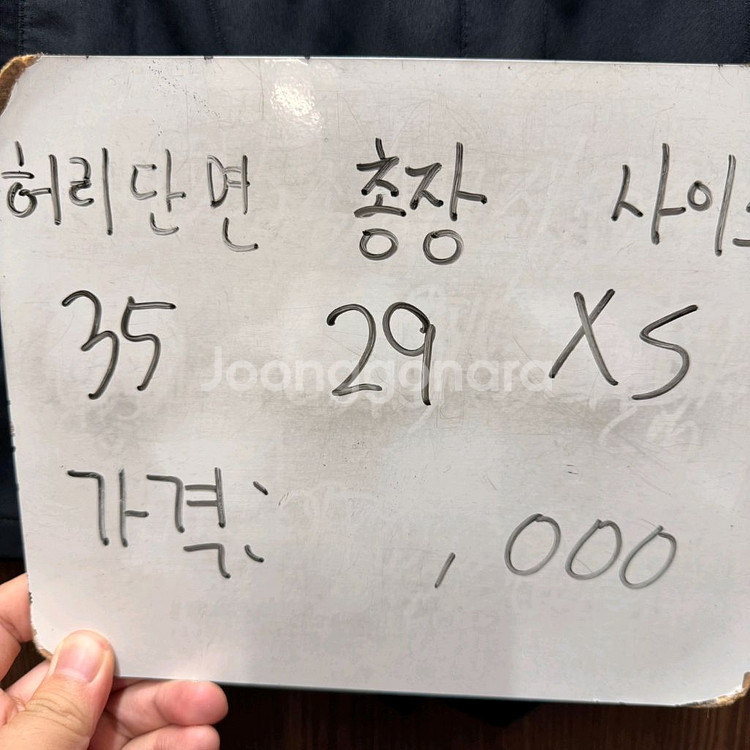 허리단면 총장 사이즈
35 29 XS
가격: ,000
Joonggonara